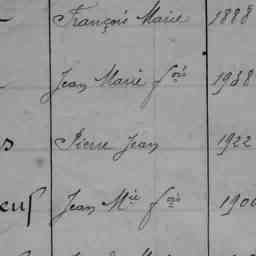 François Marie 1888
Jean Marie fois 1938
s Pierre Jean 1922
euf Jean Mie fois 190